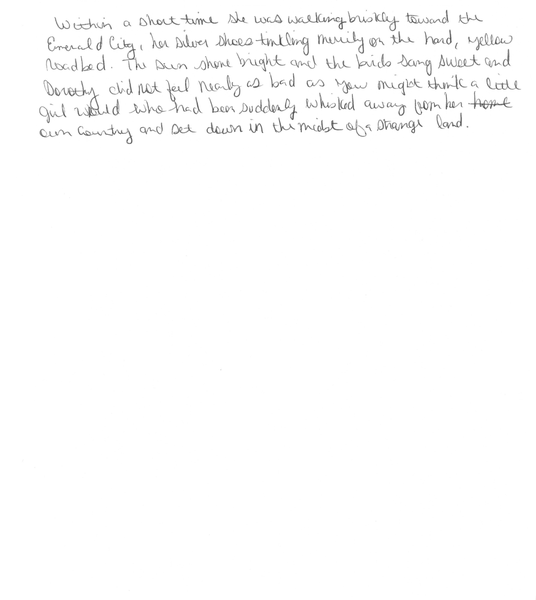 Within a short time she was walking briskly toward the
Emerald City, her silver shoes tinkling merrily on the hard, yellow
roadbed. The sun shone bright and the birds sang sweet and
Dorothy did not feel nearly as bad as you might think a little
girl would who had been suddenly whisked away from her home
own country and set down in the midst of a strange land.